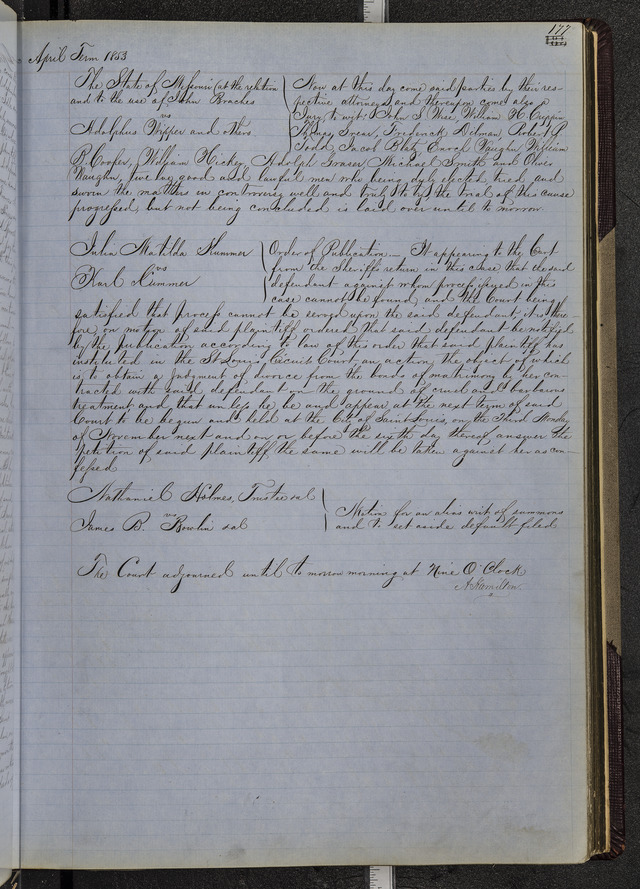 177
April Term 1853
The State of Missouri (at the relation
and to the use of John Broaches
vs
Adolphus Wipper and others
Now at this day come said parties by their res-
pective attorneys and thereupon come also a
Jury to wit: John S. Wise, William H. Crippin
Spear, Frederick Delman, Robert P.
Todd, Jacob Platz, Enroh Vaughn, William
B. Cooper, William Hickey, Adolph Graser Michael Smith and Oliver
Vaughn, twelve good and lawful men who being duly elected tried and
sworn the matters in controversy well and truly to try, the trial of this cause
progressed, but not being concluded is laid over until to morrow.
Julia Matilda Kummer
vs
Karl Kummer
Order of Publication — It appearing to the Court
from the Sheriffs return in this case that the said
defendant against whom process issued in this
case cannot be found, and the Court being
satisfied that process cannot be served upon the said defendant, it is there-
fore, on motion of said plaintiff ordered that said defendant be notified
by the publication according to law of this order that said plaintiff has
instituted in the St Louis Circuit Court, an action, the object of which
is to obtain a judgment of divorce from the bonds of matrimony by her con-
tracted with said defendant on the ground of cruel and barbarous
treatment, and that unless he be and appear at the next term of said
Court to be begun and held at the City of Saint Louis, on the Third Monday
of November next and on or before the sixth day thereof, answer the
petition of said plaintiff, the same will be taken against her as con-
fessed
Nathaniel Holmes, Trustee &al
vs
James B. Bowlin &al
Motion for an alias writ of summons
and to set aside default filed
The Court adjourned until to morrow morning at Nine O'Clock
A Hamilton